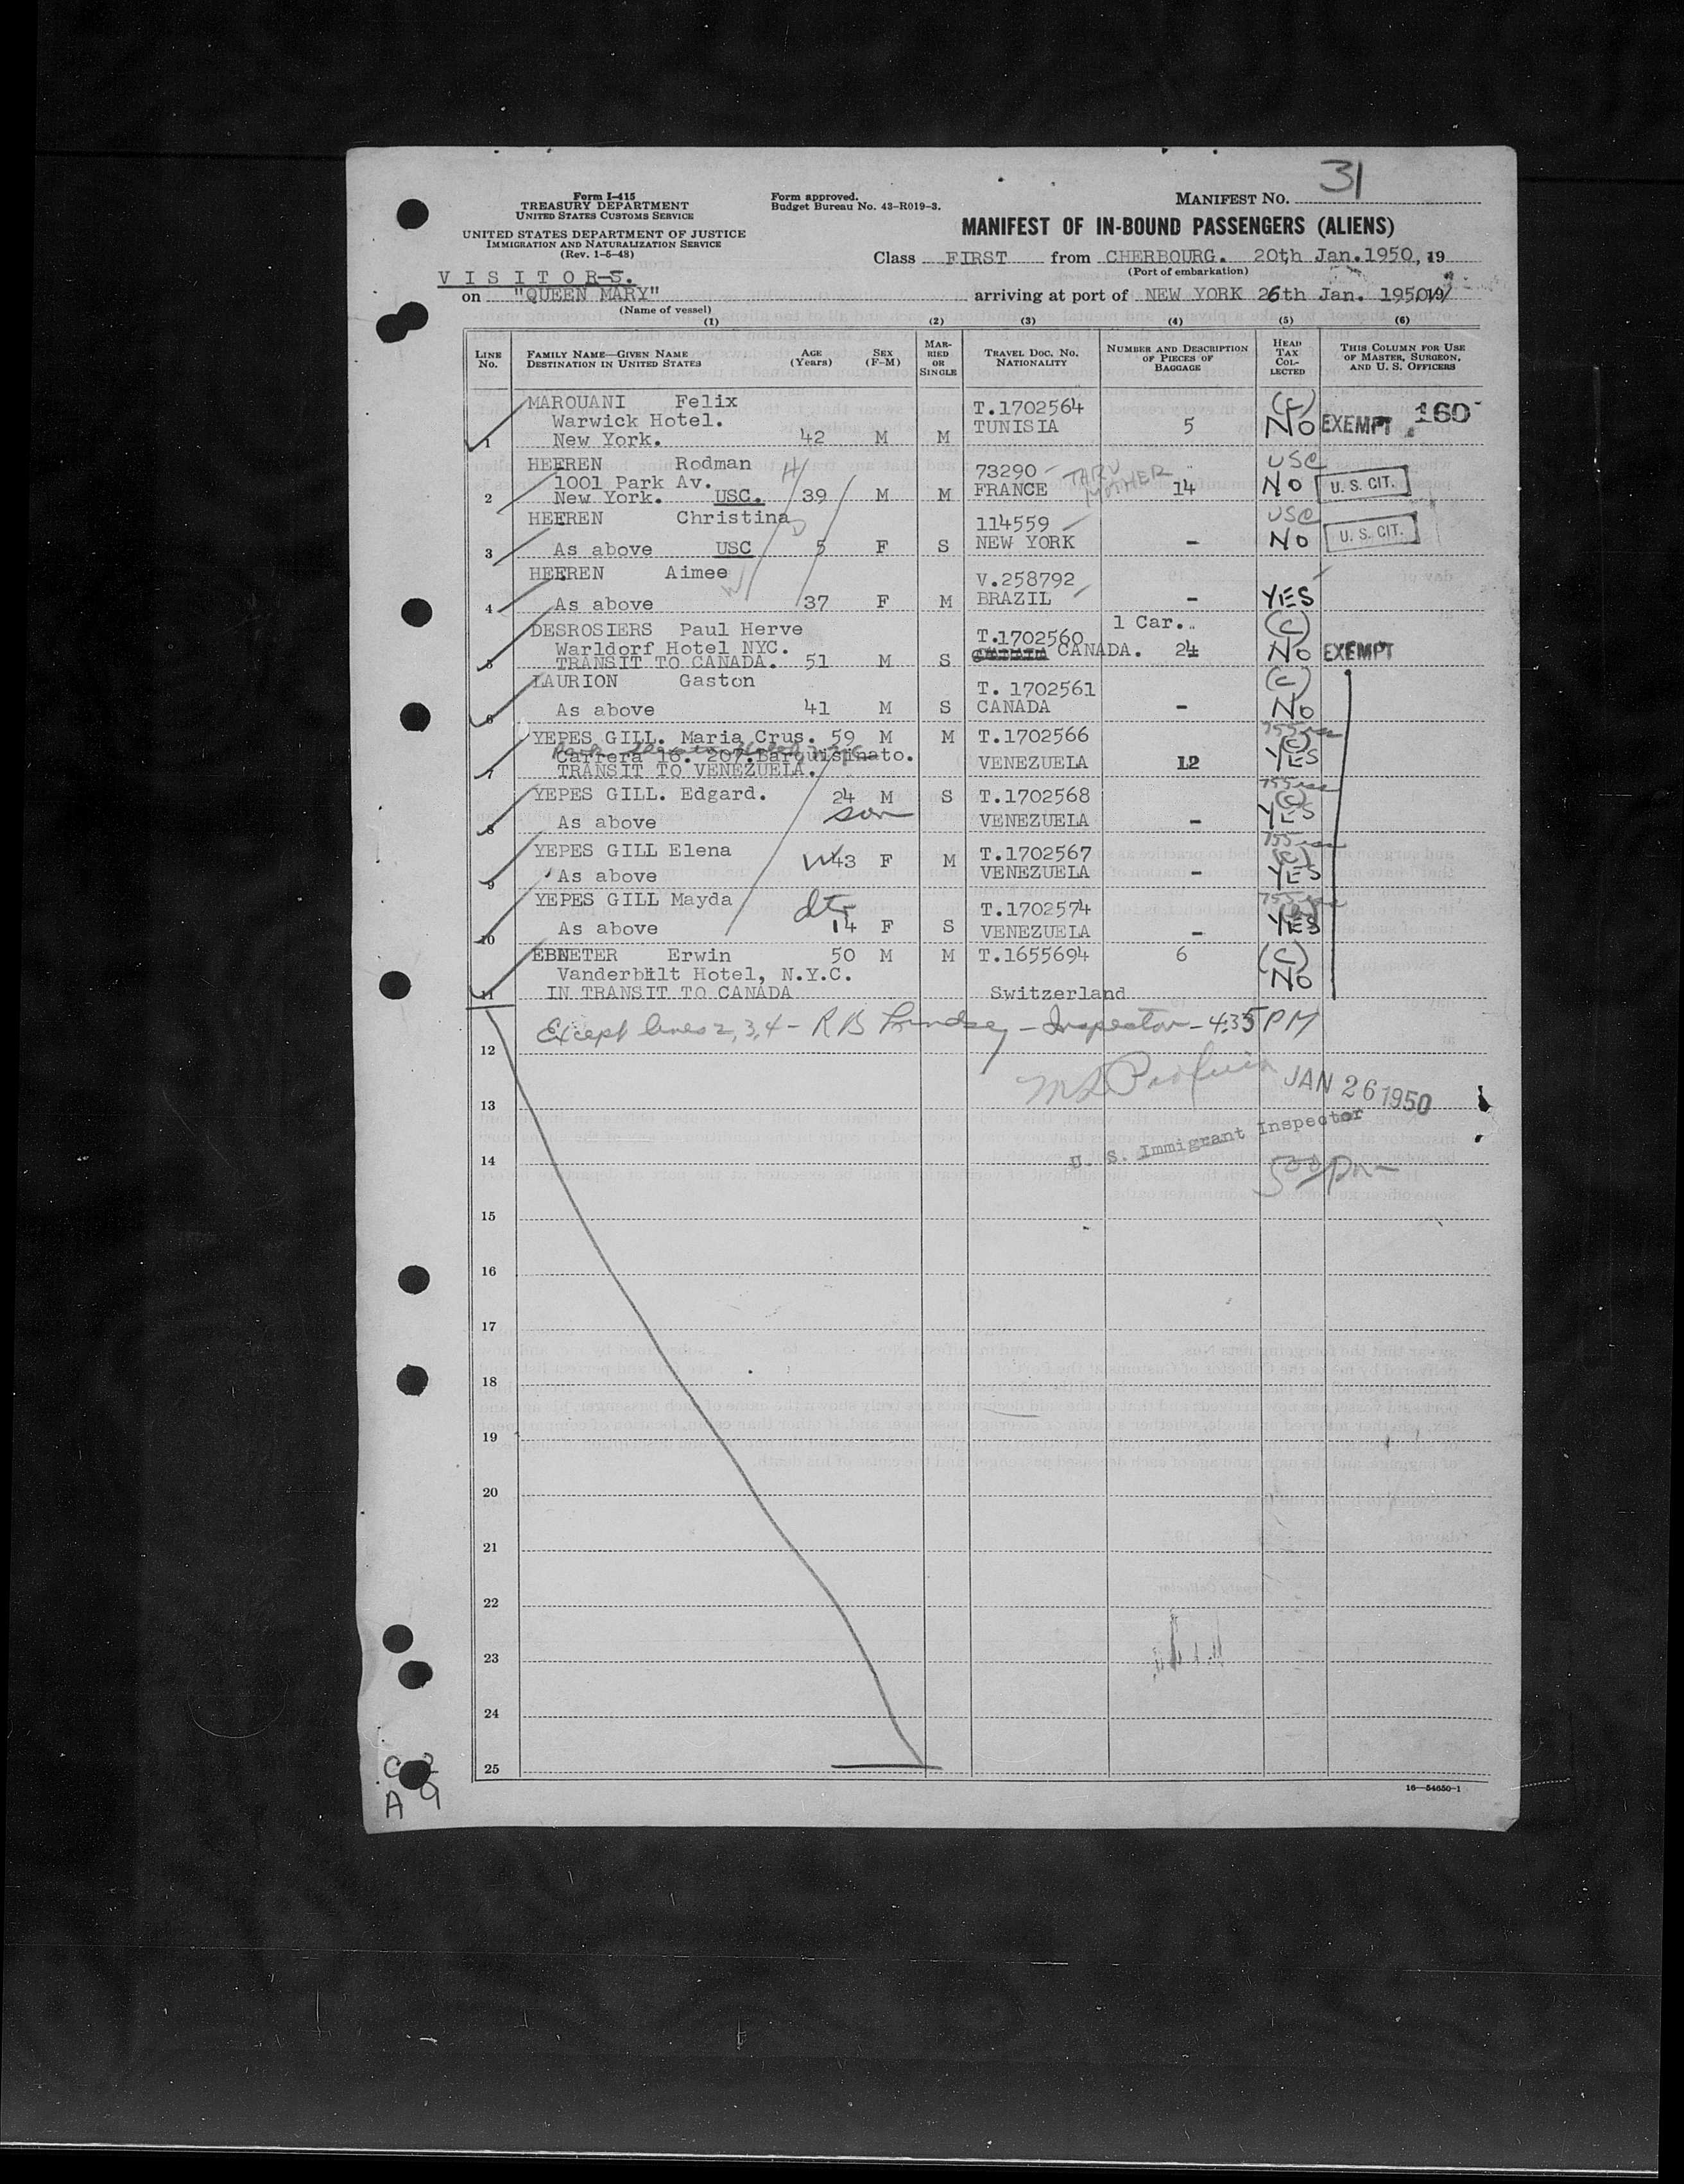 31
Form I-415
TREASURY DEPARTMENT
UNITED STATES CUSTOMS SERVICE
UNITED STATES DEPARTMENT OF JUSTICE
IMMIGRATION AND NATURALIZATION SERVICE
(Rev. 1-5-48)
Form approved.
Budget Bureau No. 43-R019-3.
MANIFEST No.
MANIFEST OF IN-BOUND PASSENGERS (ALIENS)
Class FIRST from CHERBOURG. 20th Jan.1950, 19
(Port of embarkation)
V I S I T O R S.
on "QUEEN MARY" arriving at port of NEW YORK 26th Jan. 1950, 19
(Name of vessel)
(1) (2) (3) (4) (5) (6)
LINE No. FAMILY NAME—GIVEN NAME DESTINATION IN UNITED STATES AGE (Years) SEX (F-M) MARRIED OR SINGLE TRAVEL DOC. NO. NATIONALITY NUMBER AND DESCRIPTION OF PIECES OF BAGGAGE HEAD TAX COLLECTED THIS COLUMN FOR USE OF MASTER, SURGEON, AND U. S. OFFICERS
MAROUANI Felix T.1702564 (C)
Warwick Hotel. TUNISIA 5 NO EXEMPT 160
1 New York. 42 M M
HEEREN Rodman H 73290 THRU MOTHER USC
1001 Park Av.
2 New York. USC. 39 M M FRANCE 14 NO U. S. CIT.
HEEREN Christina D 114559 USC
3 As above USC 5 F S NEW YORK - NO U. S. CIT.
HEEREN Aimee W V.258792
4 As above 37 F M BRAZIL - YES
DESROSIERS Paul Herve 1 Car. (C)
Warldorf Hotel NYC. T.1702560
5 TRANSIT TO CANADA. 51 M S CANADA. 24 NO EXEMPT
LAURION Gaston T. 1702561 (C)
6 As above 41 M S CANADA - NO
YEPES GILL. Maria Crus. 59 M M T.1702566 755
Carrera 16. 207.Barquisinato. (C)
7 TRANSIT TO VENEZUELA. VENEZUELA 12 YES
YEPES GILL. Edgard. 24 M S T.1702568 755
son (C)
8 As above VENEZUELA - YES
YEPES GILL Elena W 43 F M T.1702567 755
9 As above VENEZUELA - (C) YES
YEPES GILL Mayda dtr T.1702574 755
10 As above 14 F S VENEZUELA - YES
EBNETER Erwin 50 M M T.1655694 6 (C)
Vanderbilt Hotel, N.Y.C. NO
11 IN TRANSIT TO CANADA Switzerland
Except lines 2, 3, 4 - R B - Inspector - 4:35 PM
12
JAN 26 1950
13
U. S. Immigrant Inspector
14
500 pm
15
16
17
18
19
20
21
22
23
24
25
16—54650-1
C 2
A 9